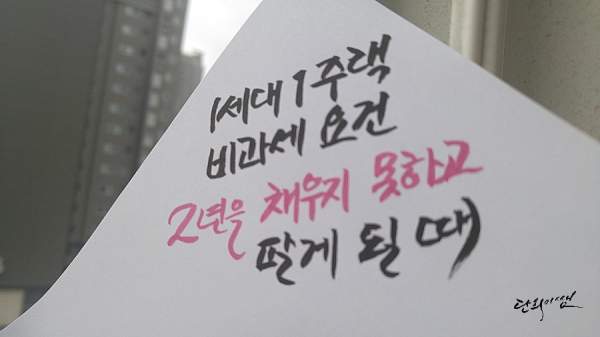 1세대 1주택
비과세 요건
2년을 채우지 못하고
팔게 될 때
단희쌤